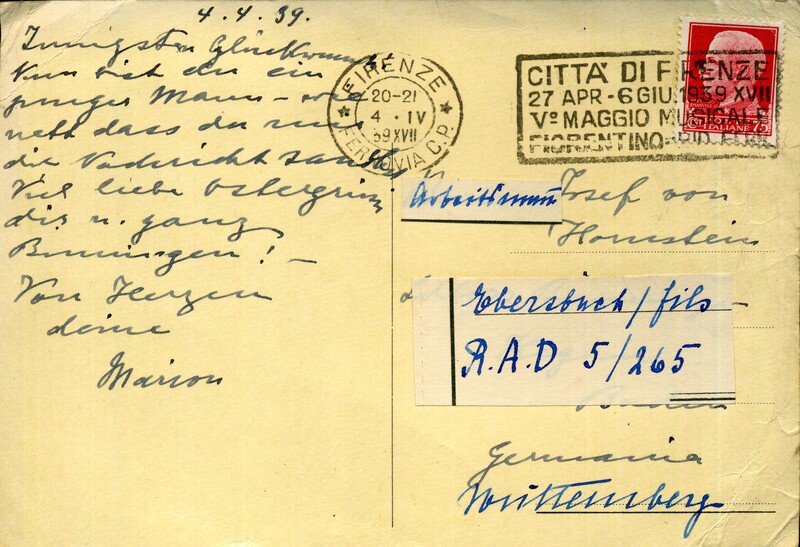 4.4.39.
Innigsten Glückwunsch!
Nun bist du ein
junger Mann – wie
nett dass du mir
die Nachricht sandtest
Viel liebe Ostergrüsse
dir u. ganz
Binningen! –
Von Herzen
deine
Marion
FIRENZE
20-21
4 · IV
39 XVII
FERROVIA C.P.
CITTÀ DI FIRENZE
27 APR - 6 GIU. 1939 XVII
Vº MAGGIO MUSICALE
FIORENTINO
ITALIANE 75
Arbeitsmann Josef von
Hornstein
Ebersbach/fils
R.A.D 5/265
Baden
Germania
Württemberg